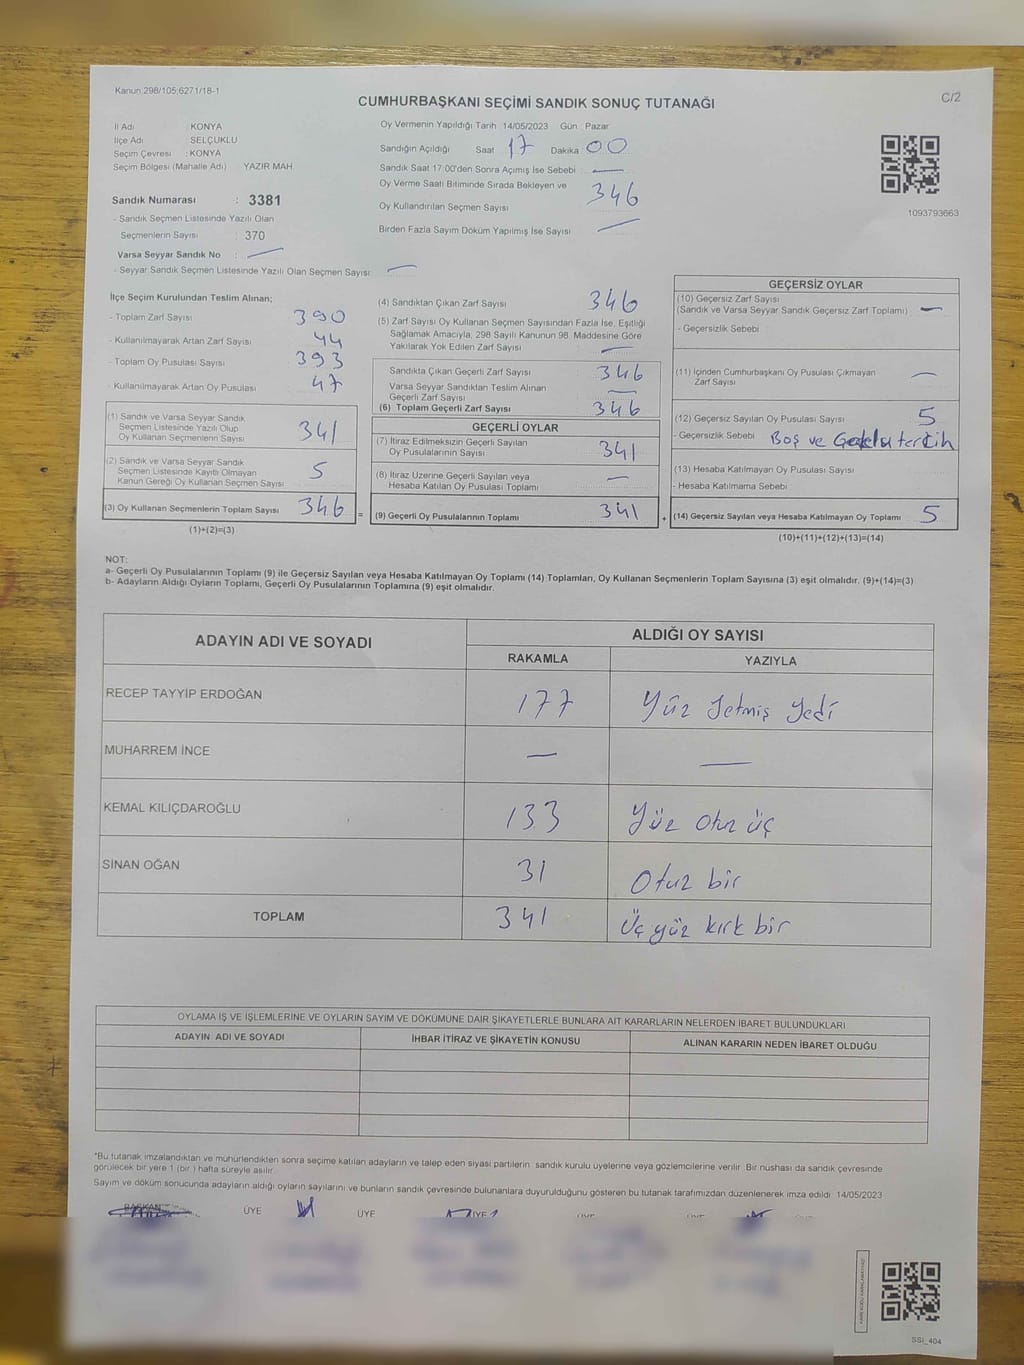 Kanun.298/105;6271/18-1
C/2
CUMHURBAŞKANI SEÇİMİ SANDIK SONUÇ TUTANAĞI
İl Adı : KONYA
İlçe Adı : SELÇUKLU
Seçim Çevresi : KONYA
Seçim Bölgesi (Mahalle Adı) YAZIR MAH.
Sandık Numarası : 3381
- Sandık Seçmen Listesinde Yazılı Olan
Seçmenlerin Sayısı : 370
Varsa Seyyar Sandık No : —
- Seyyar Sandık Seçmen Listesinde Yazılı Olan Seçmen Sayısı: —
Oy Vermenin Yapıldığı Tarih : 14/05/2023 Gün : Pazar
Sandığın Açıldığı Saat 17 Dakika 00
Sandık Saat 17:00'den Sonra Açımış İse Sebebi : —
Oy Verme Saati Bitiminde Sırada Bekleyen ve
Oy Kullandırılan Seçmen Sayısı 346
Birden Fazla Sayım Döküm Yapılmış İse Sayısı —
1093793663
İlçe Seçim Kurulundan Teslim Alınan;
- Toplam Zarf Sayısı 390
- Kullanılmayarak Artan Zarf Sayısı 44
- Toplam Oy Pusulası Sayısı 393
- Kullanılmayarak Artan Oy Pusulası 47
(1) Sandık ve Varsa Seyyar Sandık
Seçmen Listesinde Yazılı Olup
Oy Kullanan Seçmenlerin Sayısı 341
(2) Sandık ve Varsa Seyyar Sandık
Seçmen Listesinde Kayıtlı Olmayan
Kanun Gereği Oy Kullanan Seçmen Sayısı 5
(3) Oy Kullanan Seçmenlerin Toplam Sayısı 346
(1)+(2)=(3)
=
(4) Sandıktan Çıkan Zarf Sayısı 346
(5) Zarf Sayısı Oy Kullanan Seçmen Sayısından Fazla İse, Eşitliği
Sağlamak Amacıyla; 298 Sayılı Kanunun 98. Maddesine Göre
Yakılarak Yok Edilen Zarf Sayısı —
Sandıkta Çıkan Geçerli Zarf Sayısı 346
Varsa Seyyar Sandıktan Teslim Alınan
Geçerli Zarf Sayısı —
(6) Toplam Geçerli Zarf Sayısı 346
GEÇERLİ OYLAR
(7) İtiraz Edilmeksizin Geçerli Sayılan
Oy Pusulalarının Sayısı 341
(8) İtiraz Üzerine Geçerli Sayılan veya
Hesaba Katılan Oy Pusulası Toplamı —
(9) Geçerli Oy Pusulalarının Toplamı 341
+
GEÇERSİZ OYLAR
(10) Geçersiz Zarf Sayısı
(Sandık ve Varsa Seyyar Sandık Geçersiz Zarf Toplamı) —
- Geçersizlik Sebebi
(11) İçinden Cumhurbaşkanı Oy Pusulası Çıkmayan
Zarf Sayısı —
(12) Geçersiz Sayılan Oy Pusulası Sayısı 5
- Geçersizlik Sebebi Boş ve tercih
(13) Hesaba Katılmayan Oy Pusulası Sayısı
- Hesaba Katılmama Sebebi
(14) Geçersiz Sayılan veya Hesaba Katılmayan Oy Toplamı 5
(10)+(11)+(12)+(13)=(14)
NOT:
a- Geçerli Oy Pusulalarının Toplamı (9) ile Geçersiz Sayılan veya Hesaba Katılmayan Oy Toplamı (14) Toplamları, Oy Kullanan Seçmenlerin Toplam Sayısına (3) eşit olmalıdır. (9)+(14)=(3)
b- Adayların Aldığı Oyların Toplamı, Geçerli Oy Pusulalarının Toplamına (9) eşit olmalıdır.
ADAYIN ADI VE SOYADI
ALDIĞI OY SAYISI
RAKAMLA YAZIYLA
RECEP TAYYİP ERDOĞAN 177 Yüz Yetmiş Yedi
MUHARREM İNCE — —
KEMAL KILIÇDAROĞLU 133 Yüz Otuz üç
SİNAN OĞAN 31 Otuz bir
TOPLAM 341 Üç yüz kırk bir
OYLAMA İŞ VE İŞLEMLERİNE VE OYLARIN SAYIM VE DÖKÜMÜNE DAİR ŞİKAYETLERLE BUNLARA AİT KARARLARIN NELERDEN İBARET BULUNDUKLARI
ADAYIN ADI VE SOYADI İHBAR İTİRAZ VE ŞİKAYETİN KONUSU ALINAN KARARIN NEDEN İBARET OLDUĞU
*Bu tutanak imzalandıktan ve mühürlendikten sonra seçime katılan adayların ve talep eden siyasi partilerin sandık kurulu üyelerine veya gözlemcilerine verilir. Bir nüshası da sandık çevresinde
görülecek bir yere 1 (bir ) hafta süreyle asılır.
Sayım ve döküm sonucunda adayların aldığı oyların sayılarını ve bunların sandık çevresinde bulunanlara duyurulduğunu gösteren bu tutanak tarafımızdan düzenlenerek imza edildi. 14/05/2023
BAŞKAN ÜYE ÜYE ÜYE
SSI_404